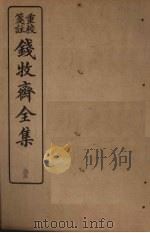 重校
箋註
錢牧齋全集
www.mtoou.info